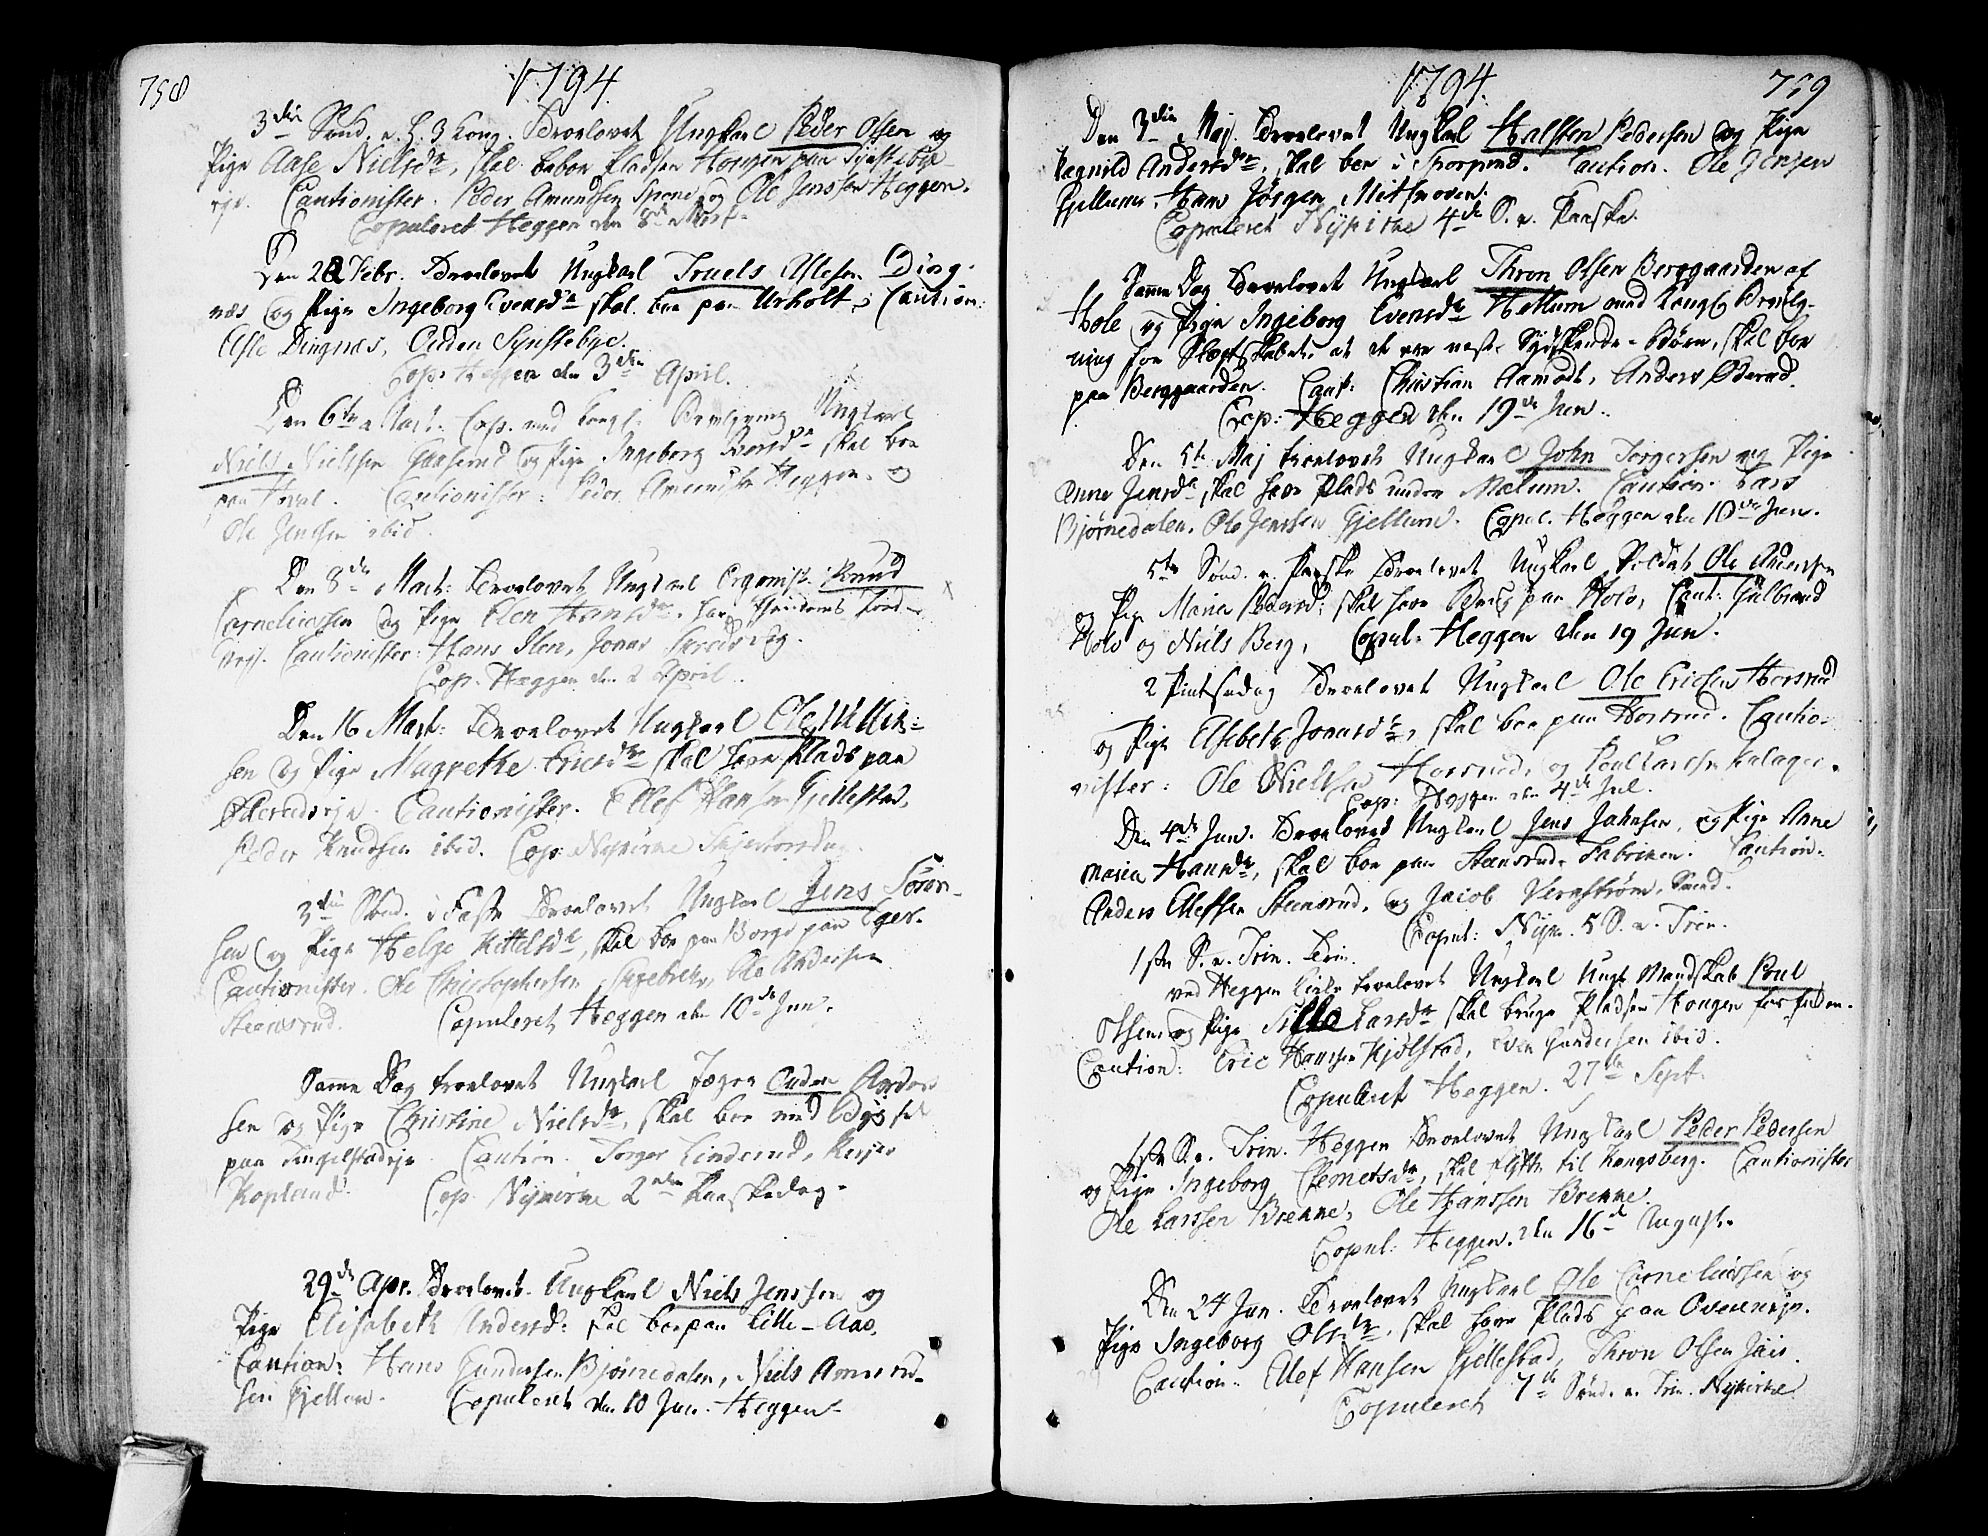 758
1794.
3die Sönd. e. h. 3 Kong. Troelovet Ungkarl Peder Olsen og
Pige Aase Nielsdr, skal beboe Pladsen Horgen paa Synsteby
eje. Cautionister. Peder Amundsen Sponne og Ole Jenssen Heggen.
Copuleret Heggen den 8de
Den 22 Febr. Troelovet Ungkarl Truels Aslesen Ding-
næs og Pige Ingeborg Evensdr skal boe paa Urholt. Caution:
Asle Dingnæs, Auden Synsteby.
Cop. Heggen den 3die April.
Den 6te Mart. Cop. med Kongl. Bevilgning Ungkarl
Niels Nielssen og Pige Ingeborg skal boe
paa Hovel. Cautionister: Peder Amundsen Heggen. og
Ole Jenssen ibid.
Den 8de Mart: Troelovet Ungkarl Organist Knud
Cornelinssen og Pige Elen Hansdr.
Cautionister: Hans Ilen, Jonas
Cop. Heggen den 2 April.
Den 16 Mart: Troelovet Ungkarl Ole
sen og Pige Magrethe Ericsdr skal have Plads paa
Cautionister. Ellef Hansen Gjellestad,
Peder Knudsen ibid. Cop: Nykirke Skjertorsdag.
3die Sönd. i Faste Troelovet Ungkarl Jens Sören-
sen og Pige Helge Kittelsdr, skal boe paa Borge paa Eger.
Cautionister. Ole Christophersen Ole Andersen
Steensrud. Copuleret Heggen den 10de Jun.
Samme Dag troelovet Ungkarl Jæger Auden Anders
sen og Pige Christine Nielsdr, skal boe ved
paa Tingelstadeje. Caution. Torger Linderud,
Kopland. Cop. Nykirke 2den Paaskedag.
29de Apr. Troelovet Ungkarl Niels Jenssen og
Pige Elisabeth Andersd: skal boe paa Lille-Aas.
Caution: Hans Gundersen Bjørnedalen, Niels Amund-
sen Gjellum. Copuleret den 10 Jun. Heggen
1794.
759
Den 3die Maj. Troelovet Ungkarl Halsten Pedersen og Pige
Ragnild Andersdr, skal boe i Caution. Ole Jensen
Gjellum. Hans Jørgen
Copuleret Nykirke 4de S. e. Paaske.
Samme Dag Troelovet Ungkarl Thron Olsen Berggaarden af
Hole og Pige Ingeborg Evensdr Hellum med Kongl Bevilg-
ning for Slægtskabet, at de ere næst Sydskende-Børn, skal boe
paa Berggaarden. Caut: Christian Aamodt, Anders
Cop: Heggen den 19de Jun.
Den 5te Maj troelovet Ungkarl John Torgersen og Pige
Anne Jensdr skal have Plads under Melum. Caution: Lars
Bjørnedalen, Ole Jenssen Gjellum. Copul. Heggen den 10de Jun.
5te Sönd. e. Paaske Troelovet Ungkarl Soldat Ole Andersen
og Pige Maria Pedersd: skal have Brug paa Holo, Caut: Gulbrand
Holo og Niels Berg, Copul: Heggen den 19 Jun.
2 Pintsedag Troelovet Ungkarl Ole Ericsen Horsrud
og Pige Elsebeth Jonasdr, skal boe paa Horsrud. Cautio-
nister: Ole Nielsen Horsrud, og Poul Larsen
Cop: Heggen den 4de Jul.
Den 4de Jun. Troelovet Ungkarl Jens Johnsen, og Pige Anne
Maria Hansdr, skal boe paa Steensrud Fabriken. Caution:
Anders Ellefsen Steensrud, og Jacob Vernström.
Copul: Nykr. 5 S. e. Trin.
1ste S. e. Trin.
ved Heggen Kirke troelovet Ungkarl Poul
Olsen og Pige Sille Larsdr skal bruge Pladsen Hougen
Caution: Eric Hansen Kjølstad, Even Gundersen ibid.
Copuleret Heggen. 27de Sept.
1ste S. e. Trin. Heggen Troelovet Ungkarl Peder Pedersen
og Pige Ingeborg Clemetsdr, skal flytte til Kongsberg. Cautionister
Ole Larssen Brenne, Ole Hanssen Brenne.
Copul: Heggen. den 16de August.
Den 24 Jun. Troelovet Ungkarl Ole Corneliussen og
Pige Ingeborg Olsdr, skal have Plads paa Overneje.
Caution: Ellef Hansen Gjellestad, Thron Olsen
Copuleret 7de Sönd. e. Trin. Nykirke.